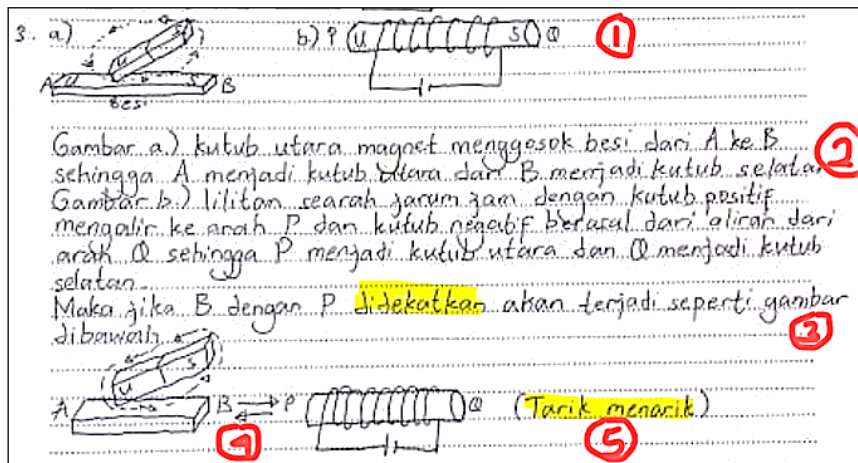 3. a) b) P U S Q 1
U S
A U S B
Besi
Gambar a.) kutub utara magnet menggosok besi dari A ke B 2
sehingga A menjadi kutub utara dan B menjadi kutub selatan
Gambar b.) lilitan searah jarum jam dengan kutub positif
mengalir ke arah P dan kutub negatif berasal dari aliran dari
arah Q sehingga P menjadi kutub utara dan Q menjadi kutub
selatan.
Maka jika B dengan P didekatkan akan terjadi seperti gambar
dibawah 3
U S
A B P Q (Tarik menarik)
4 5